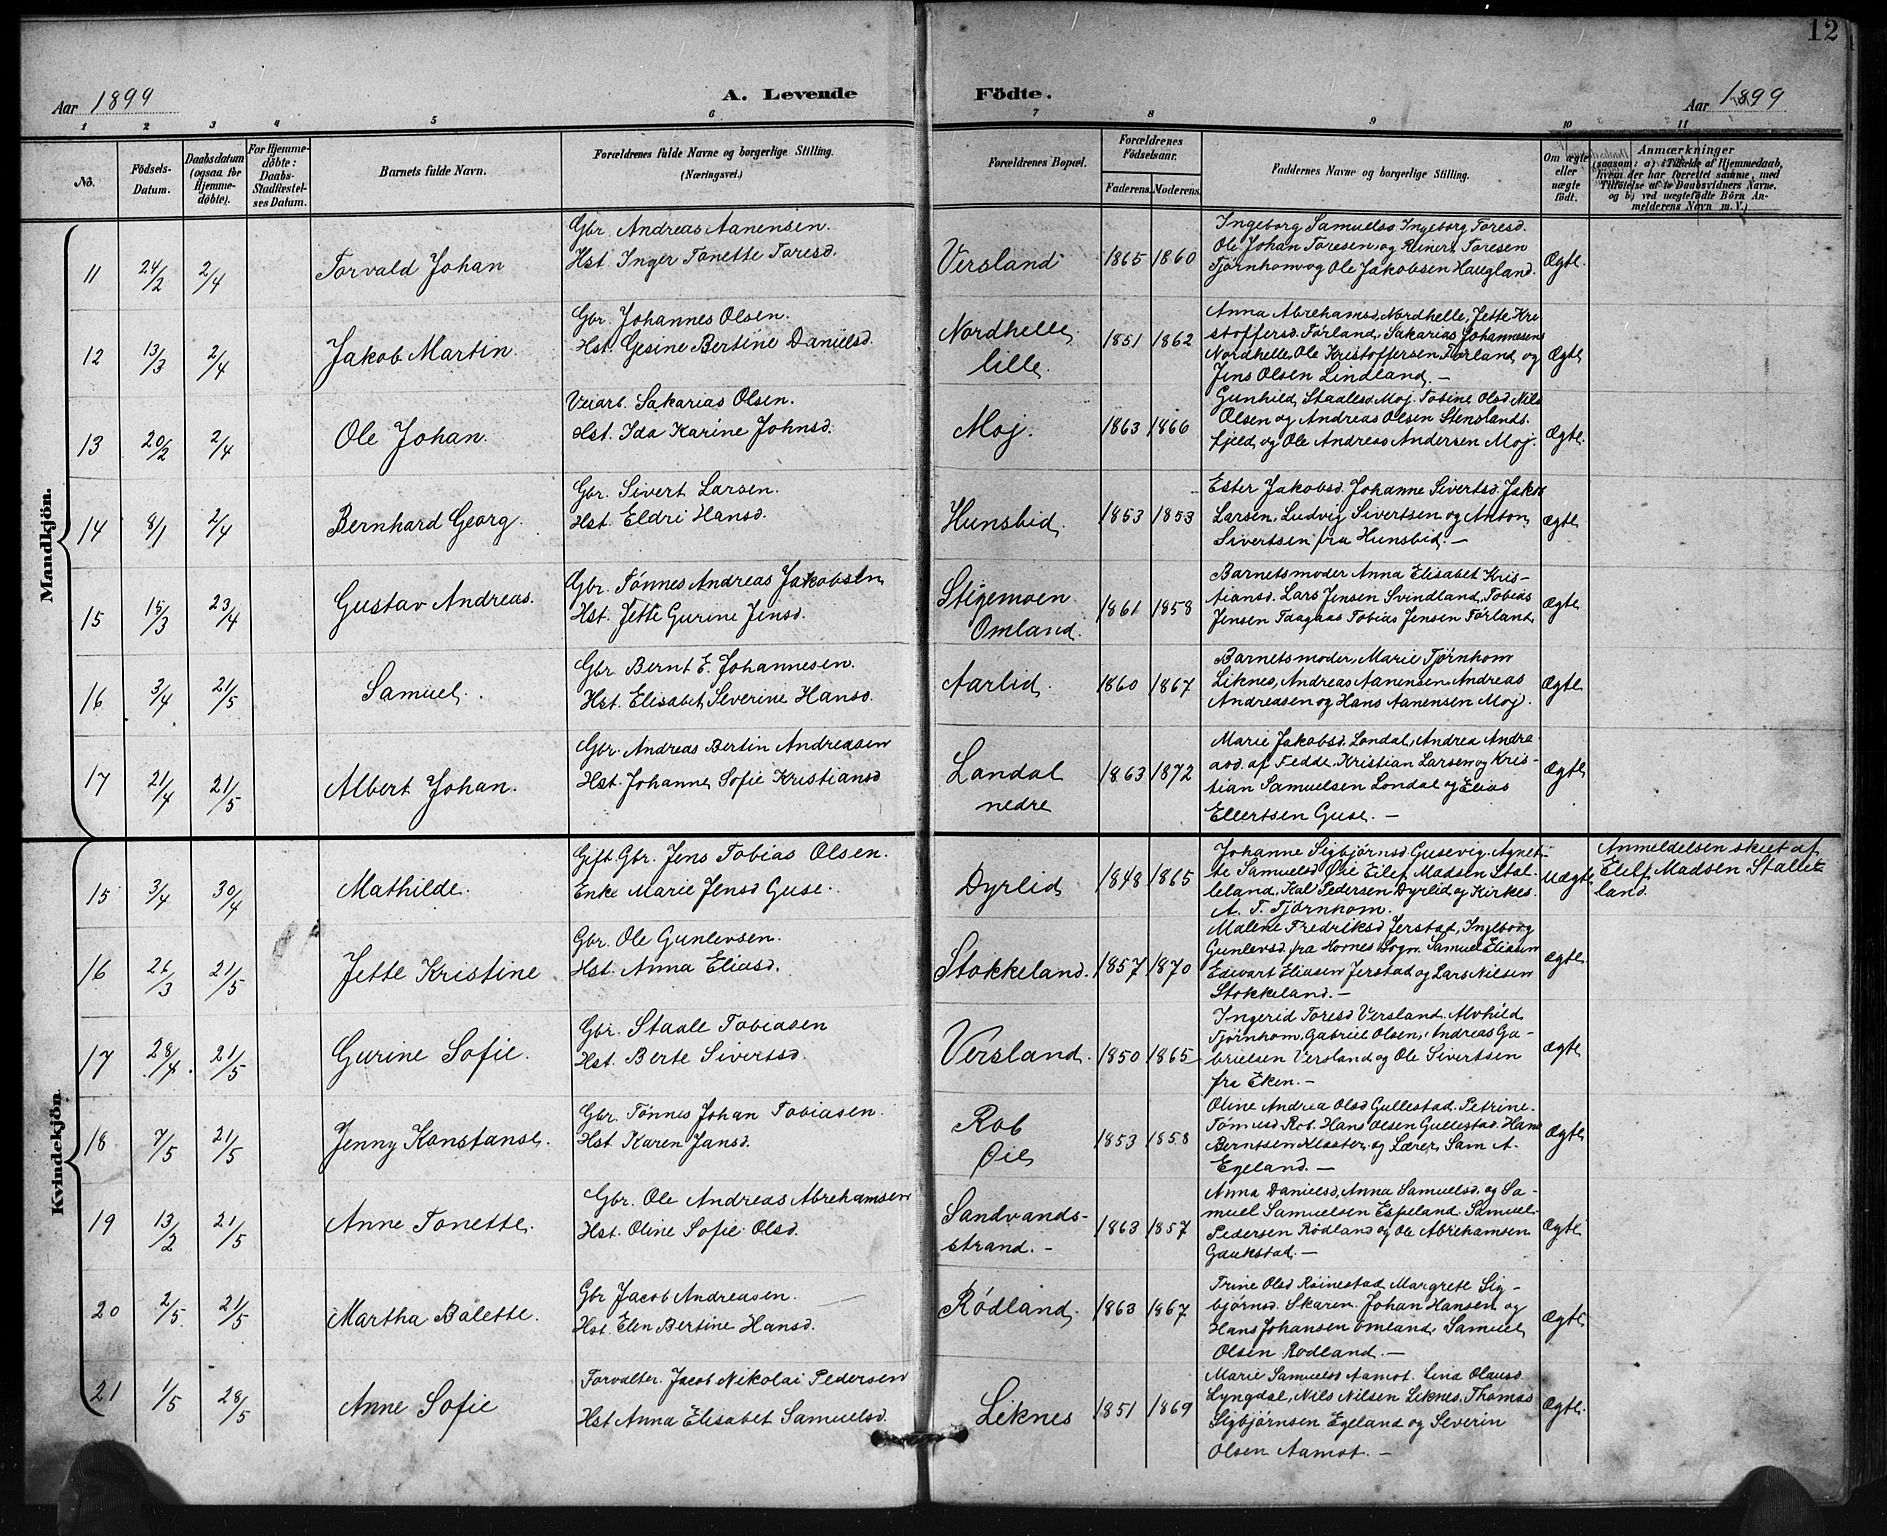 12
Aar 1899
A. Levende Födte.
Aar 1899
1 2 3 4 5 6 7 8 9 10 11
No.
Födsels-Datum.
Daabsdatum (ogsaa for Hjemme-döbte).
For Hjemme-döbte: Daabs-Stadfæstel-ses Datum.
Barnets fulde Navn.
Forældrenes fulde Navne og borgerlige Stilling. (Næringsvei.)
Forældrenes Bopæl.
Forældrenes Födselsaar.
Faderens. Moderens.
Faddernes Navne og borgerlige Stilling.
Om ægte eller uægte födt.
Anmærkninger
(saasom: a) i Tilfælde af Hjemmedaab, hvem der har forrettet samme, med Tilföielse af to Daabsvidners Navne. og b) ved uægtefödte Börn An-melderens Navn m. V.)
Mandkjön.
11 24/2 2/4 Torvald Johan
Gbr. Andreas Aanensen.
Hst. Inger Tonette Taresd.
Versland 1865 1860
Ingeborg Samuelsd Ingeborg Toresd.
Ole Johan Toresen, og Reinert Toresen
Tjørnhom og Ole Jakobsen Haugland.
Ægte.
12 13/3 2/4 Jakob Martin.
Gbr. Johannes Olsen.
Hst. Gesine Bertine Danielsd.
Nordhelle lille. 1851 1862
Anna Abrehamsd, Nordhelle, Jette Kri
stoffersd. Førland, Sakarias Johannesens
Nordhelle, Ole Kristoffersen Førland og
Jens Olsen Lindland. —
Ægte
13 20/2 2/4 Ole Johan.
Veiarb. Sakarias Olsen.
Hst. Ida Karine Johnsd.
Moj. 1863 1866
Gunhild Staalesd Moj. Tobine Olsd. Nils
Olsen og Andreas Olsen Stenslands-
fjeld, og Ole Andreas Andersen Moj.
Ægte.
14 8/1 2/4 Bernhard Georg.
Gbr. Sivert Larsen.
Hst. Eldri Hansd.
Hunsbid. 1853 1853
Ester Jakobsd. Johanne Sivertsd. Jakob
Larsen, Ludvig Sivertsen og Anton
Sivertsen fra Hunsbid. —
Ægte
15 15/3 23/4 Gustav Andreas.
Gbr. Tønnes Andreas Jakobsen
Hst. Jette Gurine Jensd.
Stigemoen Omland. 1861 1858
Barnets moder Anna Elisabet Kris-
tiansd. Lars Jensen Svindland, Tobias
Jensen Taagaas Tobias Jensen Førland.
Ægte
16 3/4 21/5 Samuel.
Gbr. Bernt E. Johannesen.
Hst. Elisabet Severine Hansd.
Aarlid. 1860 1867
Barnets moder, Marie Tjørnhom
Liknes, Andreas Aanensen Andreas
Andreasen og Hans Aanensen Moj.
Ægte
17 21/4 21/5 Albert Johan.
Gbr. Andreas Bertin Andreasen
Hst. Johanne Sofie Kristiansd
Landal nedre 1863 1872
Marie Jakobsd. Londal, Andrea Andre-
asd. af Fedde, Kristian Larsen og Kris-
tian Samuelsen Londal og Elias
Ellertsen Guse. —
Ægte
Kvindekjön.
15 3/4 30/4 Mathilde.
Gift. Gbr. Jens Tobias Olsen.
Enke Marie Jensd Guse.
Dyrlid 1848 1865
Johanne Sigbjørnsd. Gusevig. Agnet-
te Samuelsd Øie Eilef Madsen Stal-
leland, Kal Pedersen Dyrlid og Kirkes.
A. T. Tjørnhom.
Uægte
Anmeldelsen skeet af
Eilef Madsen Stalle-
land.
16 26/3 21/5 Jette Kristine
Gbr. Ole Gunlevsen.
Hst. Anna Eliasd.
Stokkeland. 1857 1870
Malene Fredriksd Jerstad, Ingeborg
Gunlevsd. fra Hornes Sogn. Samuel Eliasen
Edevart Eliasen Jerstad og Lars Nilsen
Stokkeland. —
Ægte.
17 28/4. 21/5 Gurine Sofie.
Gbr. Staale Tobiasen
Hst. Berte Sivertsd.
Versland. 1850 1865
Ingerid Toresd Versland. Alvhild
Tjørnhom, Gabriel Olsen, Andreas Ga-
brielsen Versland og Ole Sivertsen
fra Eken. —
Ægte
18 7/5 21/5 Jenny Konstanse.
Gbr. Tønnes Johan Tobiasen.
Hst. Karen Jansd.
Rob Øie 1853 1858
Oline Andrea Olsd Gullestad. Petrine
Tømesd. Rob. Hans Olsen Gullestad. Hans
Berntsen Kloster, og Lærer, Sam A.
Egeland. —
Ægte
19 13/2 21/5 Anne Tonette.
Gbr. Ole Andreas Abrehamsen
Hst. Oline Sofie Olsd.
Sandvands-strand. — 1863 1857
Anna Danielsd, Anna Samuelsd. og Sa-
muel Samuelsen Espeland. Samuel-
Pedersen Rødland og Ole Abrehamsen
Gaukstad. —
Ægte
20 2/5. 21/5 Martha Balette.
Gbr Jacob Andreasen.
Hst. Elen Bertine Hansd.
Rødland. 1863 1867
Trine Olsd Røinestad Margrete Sig-
bjørnsd. Skaren. Johan Hansen og
Hans Johansen Omland. Samuel
Olsen Rødland. —
Ægte
21 1/5 28/5 Anne Sofie
Forvalter. Jacob Nikolai Pedersen
Hst Anna Elisabet Samuelsd.
Liknes 1851 1869
Marie Samuelsd Aamot. Lina Olausd.
Lyngdal, Nils Nilsen Liknes, Thomas
Sigbjørnsen Egeland og Severin
Olsen Aamot. —
Ægte.